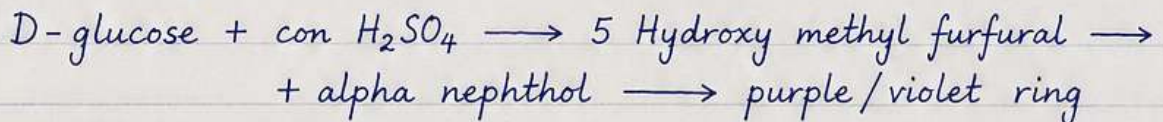 D-glucose + con H₂SO₄ ⟶ 5 Hydroxy methyl furfural ⟶
+ alpha nephthol ⟶ purple/violet ring